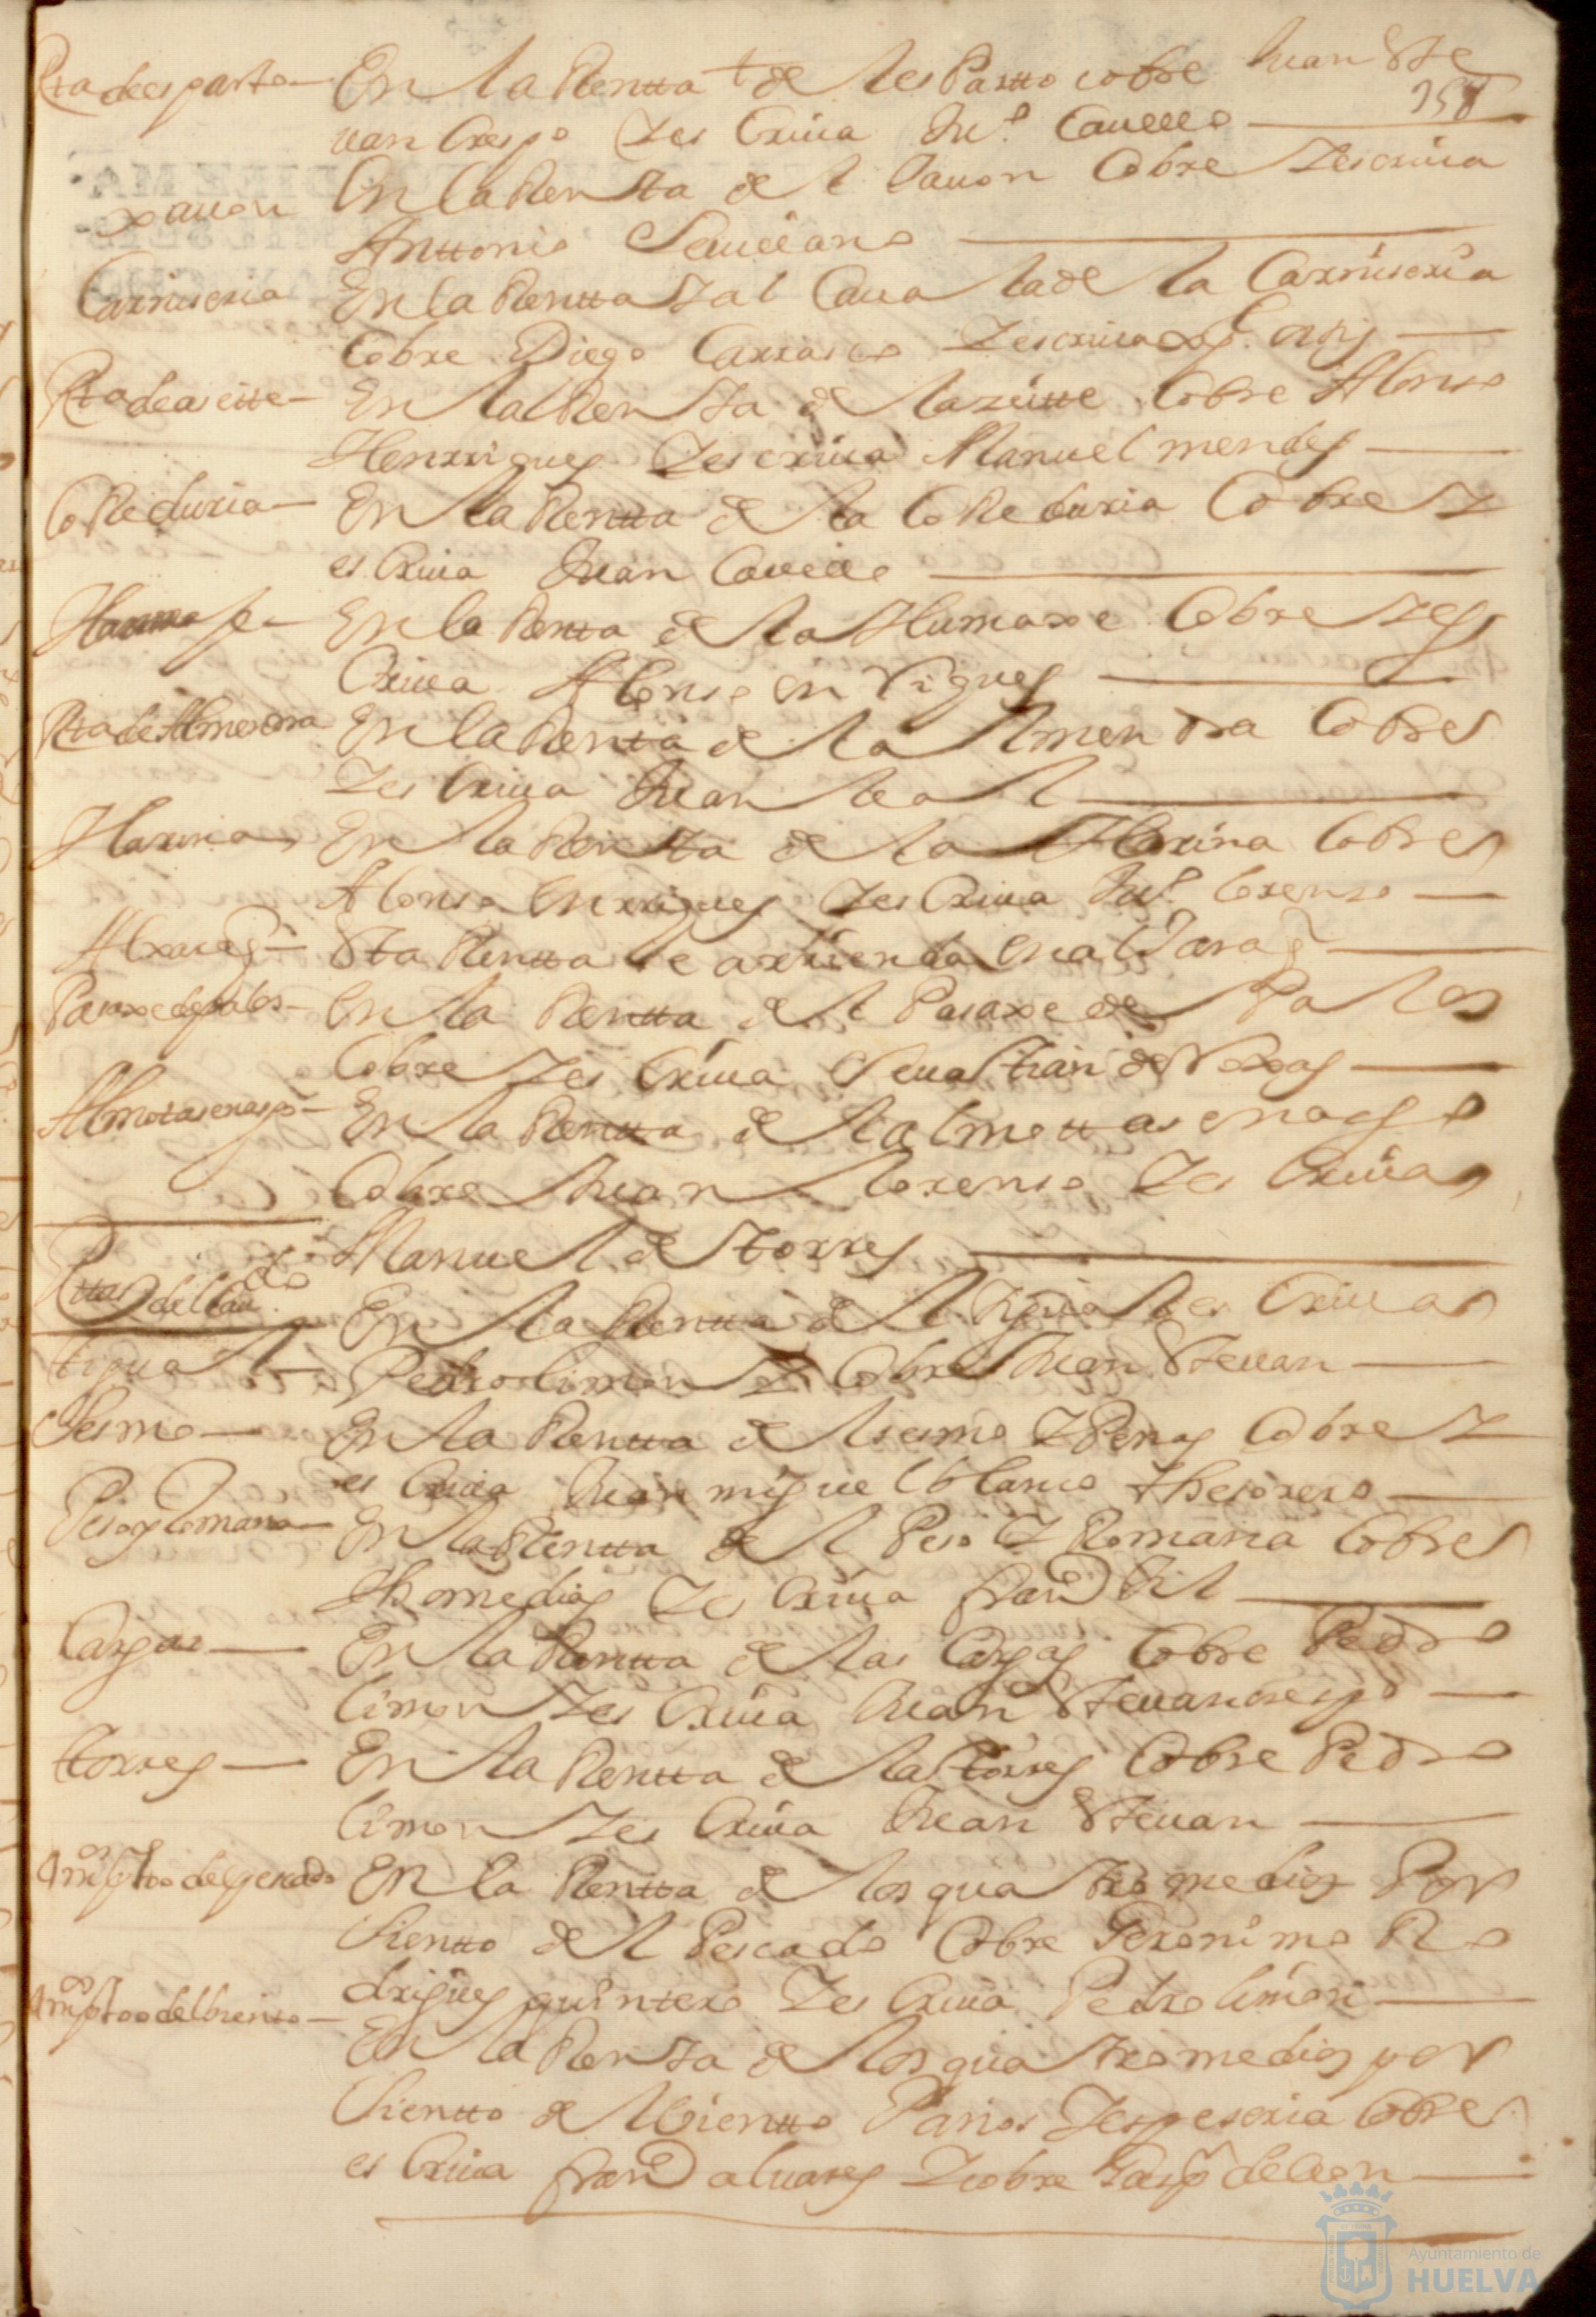 Rta de esparto — En la Rentta de lesPartto cobre Juan Ste
158
uan Crespo Yes Criua Juº. Cauello —
xauon En la Rentta del Jauon Cobre Yescriua
Anttonio Seuillano —
Carniseria En la Rentta Yal Caua lade la Carniseria
Cobre Diego Carrasco Yescriua
Rta de aseitte — En la Rentta de lazeitte Cobre Alonso
Henrriques Yescriua Manuel mendes —
CoReduria — En la Rentta de la CoReduria Cobre Y
es Criua Juan Cauello —
En la Renta de la Humaxe Cobre Yes
Criua Alonso enRiques —
Rta de Almendra En la Renta de la Almendra Cobre
Yes Criua Juan leal —
Harina En la Rentta de la Harina Cobre
Alonso Enrriques Yes Criua Juº. lorenso —
Sta Rentta se arrienda en
Pasaxe de palos — En la Rentta del Pasaxe de Palos
Cobre Yes Criua Seuastian de Vargas —
Almotasenasgo — En la Rentta del almottasenasgo
Cobre Juan lorenso Yes Criua
Manuel de torres —
Rttas del Cau.do
En la Rentta del tigual es Criua
tigual — Pedro limon Y Cobre Juan Steuan —
Sesmo — En la Rentta del sesmo YPenas Cobre Y
es Criua Juan miguel blanco thesorero —
Peso y Romana — En la Rentta del Peso Y Romana Cobre
Thome dias Yes Criua franco Gil —
Cargas — En la Rentta de las Cargas Cobre Pedro
limon Yes Criua Juan Steuan crespo —
torres — En la Rentta de las torres Cobre Pedro
limon Yes Criua Juan Steuan —
4 mºs pr too de pescado En la Rentta de los quatro medios Por
Sientto del Pescado Cobre Geronimo Ro
drigues quintero Yes Criua Pedro limon —
4 mºs pr too del biento — En la Rentta de los quatro medios por
Sientto del bientto Panos Yespeseria Cobre
es Criua franco aluares Ycobre Gaspr de leon —
Ayuntamiento de
HUELVA